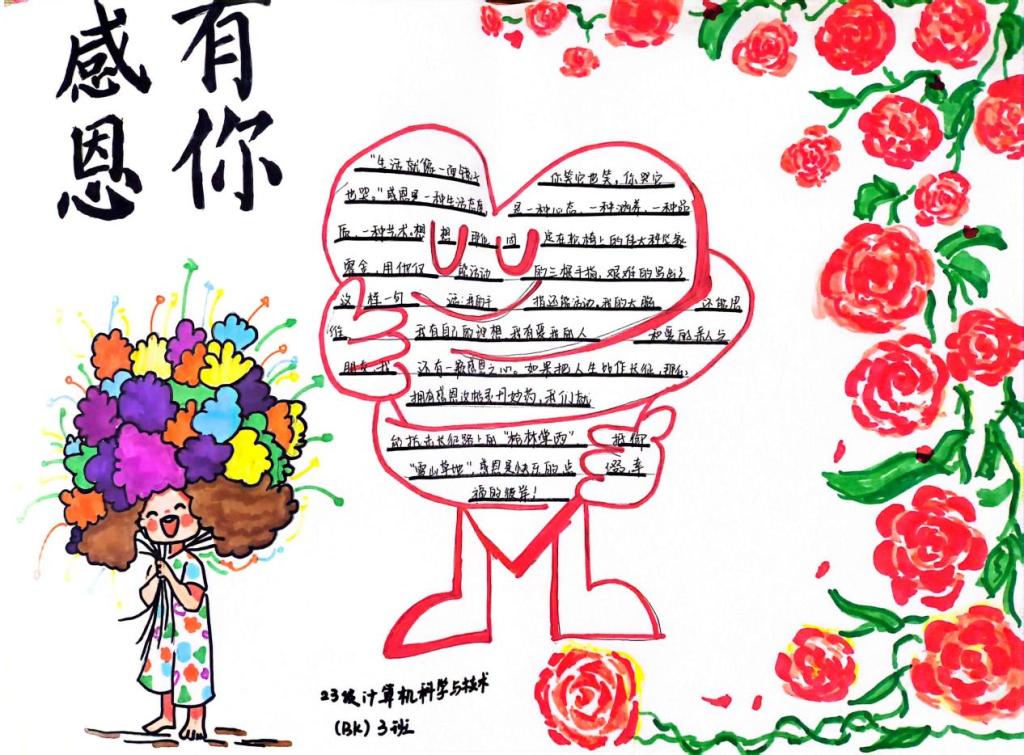 感恩
有你
"生活就像一面镜子 你笑它也笑,你哭它
也哭。"感恩是一种生活态度 是一种心态、一种涵养、一种品
质、一种艺术。想想那位固定在轮椅上的伟大科学家
霍金,用他仅能活动的三根手指,艰难的写出了
这样一句话:我的手指还能活动,我的大脑还能思
维 我有自己的理想 我有爱我的人 和爱的亲人与
朋友,我还有一颗感恩之心。如果把人生比作长征,那么,
拥有感恩这帖灵丹妙药,我们就
能抵击长征路上的"枪林弹雨" 抵御
"雪山草地",感恩是快乐的点 幸
福的彼岸!
23级计算机科学与技术
(BK)3班